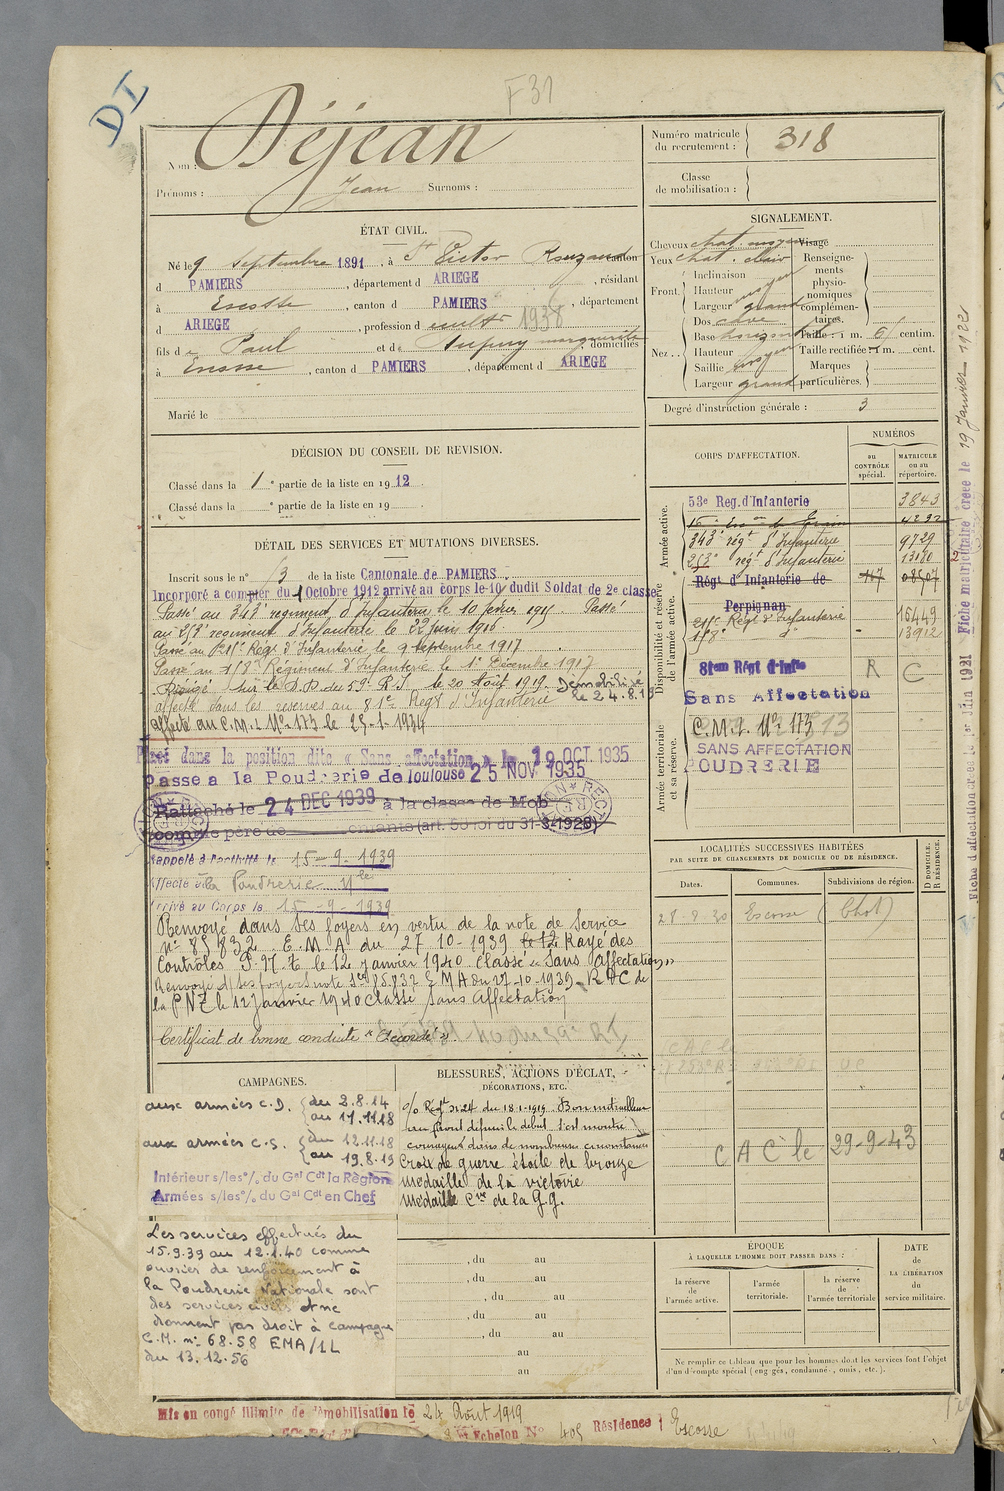 DI
F31
Nom : Déjean
Prénoms : Jean Surnoms :
Numéro matricule du recrutement : 318
Classe de mobilisation :
ÉTAT CIVIL.
Né le 9 septembre 1891, à St Victor Rouzaud canton
d PAMIERS, département d ARIEGE, résidant
à Escosse, canton d PAMIERS, département
d ARIEGE, profession de cultr 1938
fils de Paul et de Dupuy marguerite domiciliés
à Escosse, canton d PAMIERS, département d ARIEGE
Marié le
SIGNALEMENT.
Cheveux chat. moyen Visage
Yeux chat. clair Renseignements physionomiques complémentaires.
Front. Inclinaison
Hauteur moyen
Largeur grand
Nez.. Dos cave
Base horizontal Taille : 1 m. 61 centim.
Hauteur Taille rectifiée : 1 m. cent.
Saillie moyen Marques particulières.
Largeur grand
Degré d'instruction générale : 3
DÉCISION DU CONSEIL DE REVISION.
Classé dans la 1e partie de la liste en 1912.
Classé dans la e partie de la liste en 19
DÉTAIL DES SERVICES ET MUTATIONS DIVERSES.
Inscrit sous le n° 13 de la liste Cantonale de PAMIERS
Incorporé a compter du 1 Octobre 1912 arrivé au corps le 10 dudit Soldat de 2e classe
Passé au 343e régiment d'Infanterie le 10 février 1915. Passé
au 253e régiment d'Infanterie le 22 juin 1916.
Passé au 211e Régt d'Infanterie le 9 septembre 1917
Passé au 118e Régiment d'Infanterie le 1er Décembre 1917
Dirigé sur le D.D. du 59e R.I. le 20 Août 1919. Démobilisé le 24.8.19
affecté dans les reserves au 81e Régt d'Infanterie
affecté au C.M.I. N° 173 le 25-1-1934
Placé dans la position dite « Sans affectation » le 19 OCT 1935
passe a la Poudrerie de Toulouse 25 NOV 1935
Rattaché le 24 DEC 1939 à la classe de Mob
comme père de enfants (art. 58 loi du 31-3-1928)
Rappelé à l'activité le 15-9-1939
Affecté à la Poudrerie Nle
Arrivé au Corps le 15-9-1939
Renvoyé dans ses foyers en vertu de la note de service
n° 85832 E.M.A du 27-10-1939 le 12 Rayé des
Contrôles P.N.T. le 12 janvier 1940 Classé « Sans affectation »
Renvoyé d/ses foyers note 85.832 EMA du 27-10-1939-RDC de
la PNT le 12 Janvier 1940 Classé Sans affectation
Certificat de bonne conduite « Accordé ».
CORPS D'AFFECTATION.
NUMÉROS
au CONTRÔLE spécial.
MATRICULE ou au répertoire.
Armée active.
Disponibilité et réserve de l'armée active.
Armée territoriale et sa réserve.
53e Reg. d'Infanterie 3843
4232
343e régt d'Infanterie 9729
253e régt d'Infanterie 13180
Régt d'Infanterie de Perpignan 117 08507
211e Régt d'Infanterie 15449
118e d° 13912
81em Régt d'Infie R C
Sans Affectation
C.M.I. N° 173
SANS AFFECTATION
POUDRERIE
LOCALITÉS SUCCESSIVES HABITÉES
PAR SUITE DE CHANGEMENTS DE DOMICILE OU DE RÉSIDENCE.
Dates. Communes. Subdivisions de région. D DOMICILE. R RÉSIDENCE.
28-8-30 Escosse
C A C le 29-9-43
CAMPAGNES.
aux armées C.D. du 2.8.14
au 11.11.18
aux armées C.S. du 12.11.18
au 19.8.19
Intérieur s/les % du Gal Cdt la Région
Armées s/les % du Gal Cdt en Chef
Les services effectués du
15.9.39 au 12.1.40 comme
ouvrier de renforcement à
la Poudrerie Nationale sont
des services civils et ne
donnent pas droit à campagne
C.M. n° 68.58 EMA/1L
du 13.12.56
BLESSURES, ACTIONS D'ÉCLAT,
DÉCORATIONS, ETC.
o/o Régt N° 24 du 18-1-1919. Bon mitrailleur
au front depuis le début s'est montré
courageux dans de nombreuses circonstances
Croix de guerre étoile de bronze
médaille de la victoire
médaille Cve de la G.G.
, du au
, du au
, du au
, du au
, du au
au
au
ÉPOQUE
À LAQUELLE L'HOMME DOIT PASSER DANS :
la réserve de l'armée active.
l'armée territoriale.
la réserve de l'armée territoriale
DATE de LA LIBÉRATION du service militaire.
Ne remplir ce tableau que pour les hommes dont les services font l'objet
d'un décompte spécial (engagés, condamnés, omis, etc.).
Mis en congé illimité de démobilisation le 24 Août 1919
Echelon N° 405 Résidence : Escosse
Fiche d'affectation créée le 1er Juin 1921 Fiche matriculaire créée le 19 Janvier 1922